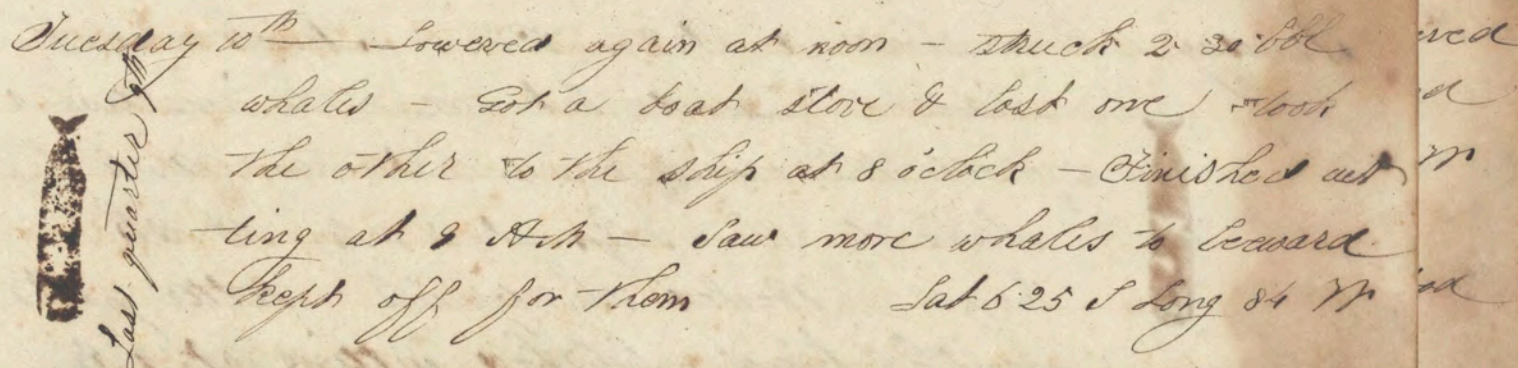 Tuesday 10th — Lowered again at noon – struck 2 30 bbl
whales – Got a boat stove & lost one – took
the other to the ship at 8 o'clock – Finished cut
ting at 9 AM – Saw more whales to leeward
kept off for them Lat 6 25 S Long 84 W
Last quarter 9th
ved
d
W
ed